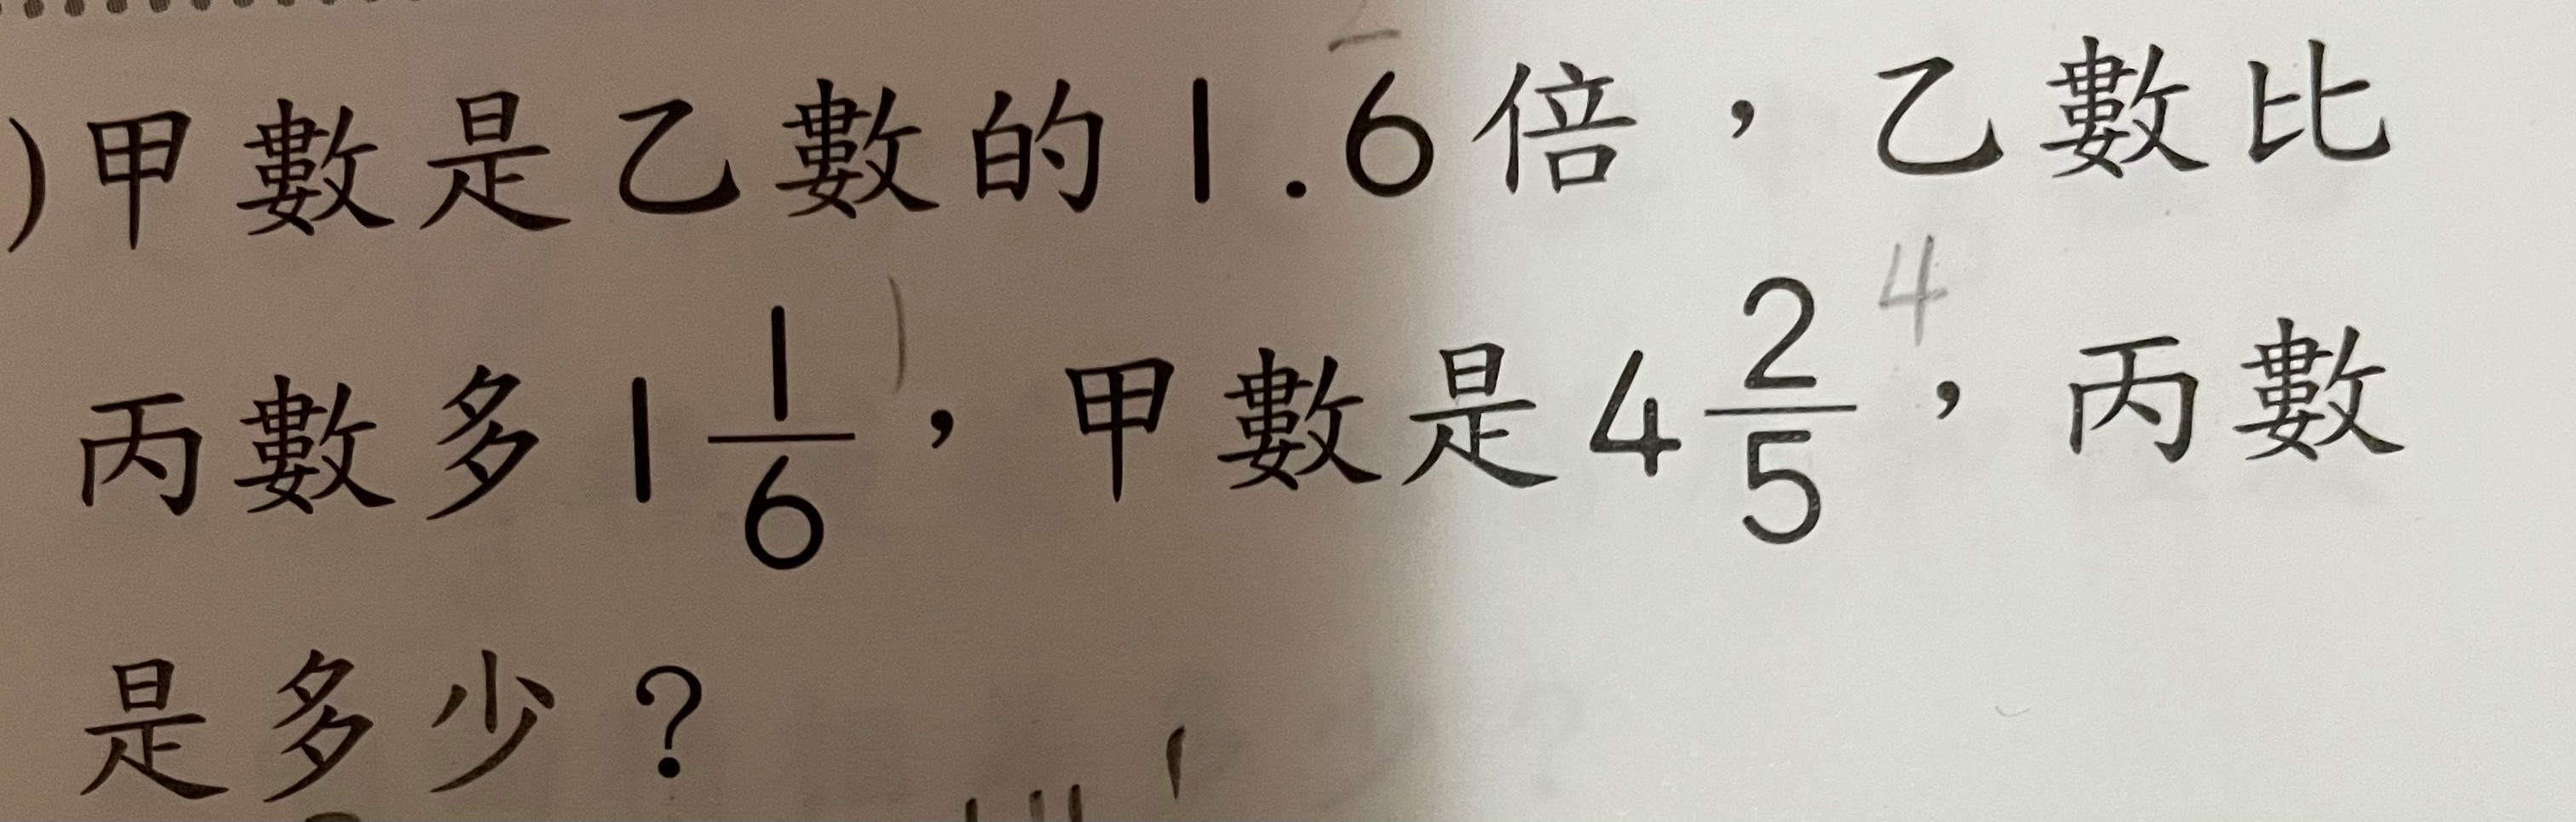 )甲數是乙數的1.6倍，乙數比
丙數多1 1/6，甲數是4 2/5，丙數 4
是多少？